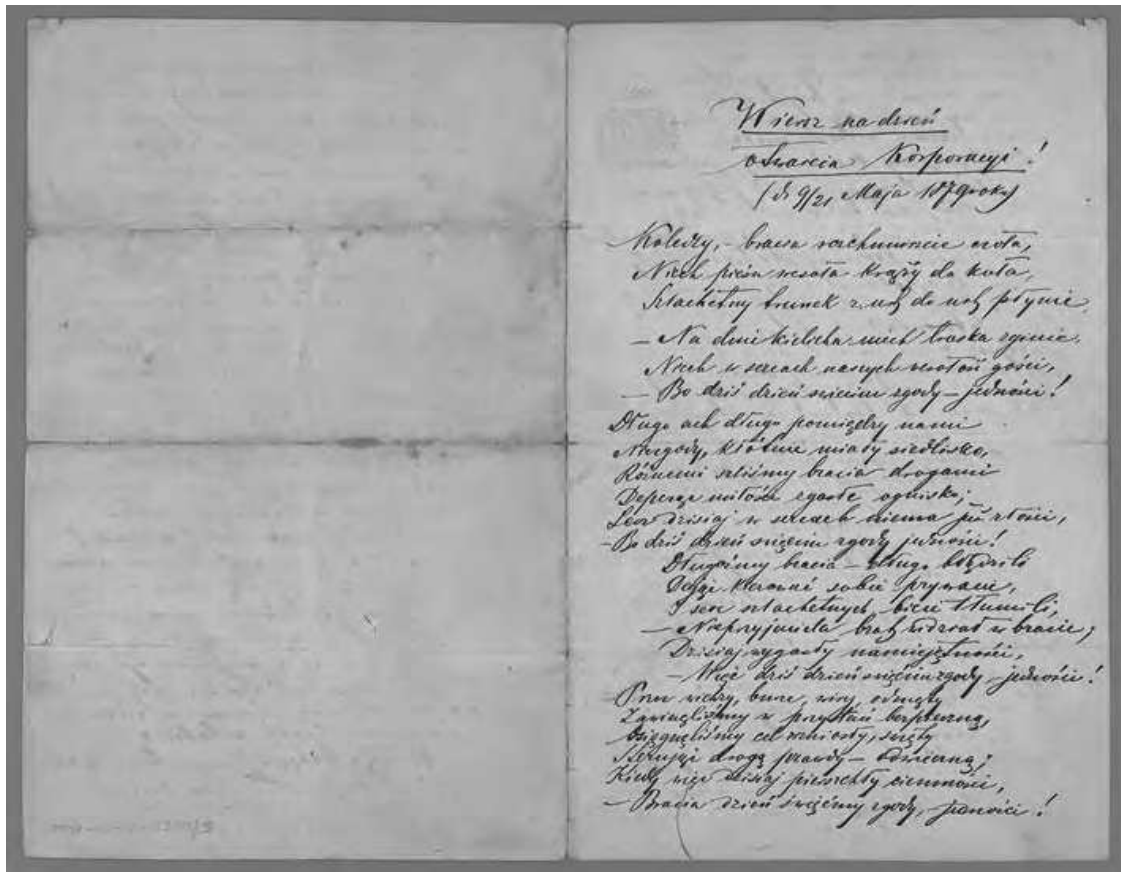 Wiersz na dzień
otwarcia Korporacyi!
(d. 9/21 Maja 1879 roku)
Koledzy, – bracia rozchmurzcie czoła,
Niech pieśń wesoła krąży do koła,
Szlachetny trunek z ust do ust płynie,
– Na dnie kielicha niech troska zginie,
Niech w sercach naszych wesołość gości,
– Bo dziś dzień święcim zgody – jedności!
Długo ach długo pomiędzy nami
Niezgody, kłótnie miały siedlisko,
Różnemi szliśmy bracia drogami
miłości zgasłe ognisko;
Lecz dzisiaj w sercach niema już złości,
– Bo dziś dzień święcim zgody jedności!
Długośmy bracia – długo błądzili
sobie prywacie,
I serc szlachetnych bicie tłumili,
– Nieprzyjaciela brat widział w bracie;
Dzisiaj wygasły namiętności,
– Więc dziś dzień święcim zgody – jedności!
Przez wichry, burze, wiry, odmęty
Zawinęliśmy w przystań bezpieczną,
cel wzniosły, święty
drogę prawdy – odwieczną;
Kiedy więc dzisiaj pierzchły ciemności,
– Bracia dzień święćmy zgody, – jedności!